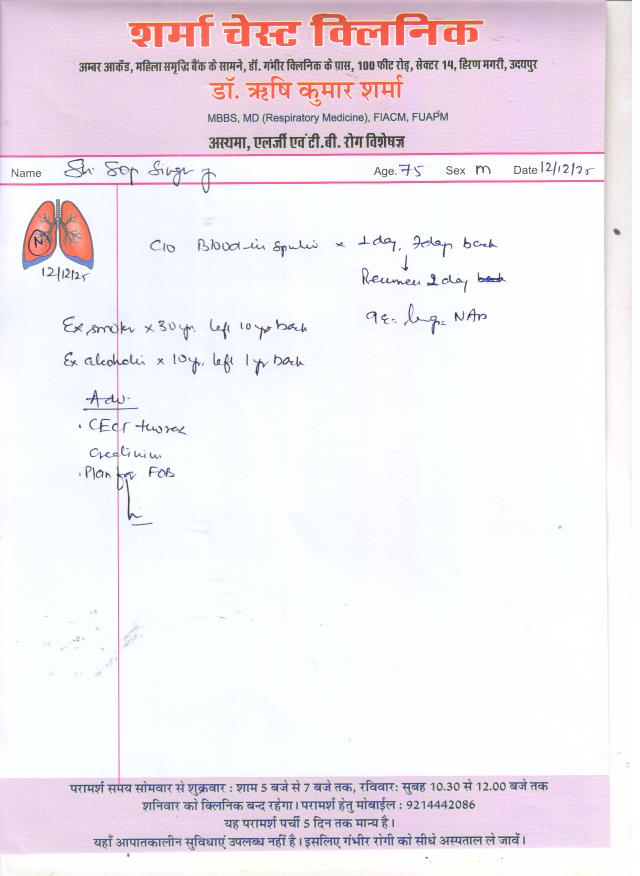 शर्मा चेस्ट क्लिनिक
अम्बर आर्केड, महिला समृद्धि बैंक के सामने, डॉ. गंभीर क्लिनिक के पास, 100 फीट रोड़, सेक्टर 14, हिरण मगरी, उदयपुर
डॉ. ऋषि कुमार शर्मा
MBBS, MD (Respiratory Medicine), FIACM, FUAPM
अस्थमा, एलर्जी एवं टी.बी. रोग विशेषज्ञ
Name Sh. Singh Age. 75 Sex m Date 12/12/25
12/12/25
C/O Blood in sputum x 1 day, 7 day back
2 day
Ex smoker x 30 yr. left 10 yr back
lung = NAD
Ex alcoholic x 10 yr. left 1 yr back
Adv.
. CECT thorax
Creatinine
. Plan for FOB
परामर्श समय सोमवार से शुक्रवार : शाम 5 बजे से 7 बजे तक, रविवार: सुबह 10.30 से 12.00 बजे तक
शनिवार को क्लिनिक बन्द रहेगा। परामर्श हेतु मोबाईल : 9214442086
यह परामर्श पर्ची 5 दिन तक मान्य है।
यहाँ आपातकालीन सुविधाएं उपलब्ध नहीं है। इसलिए गंभीर रोगी को सीधे अस्पताल ले जावें।